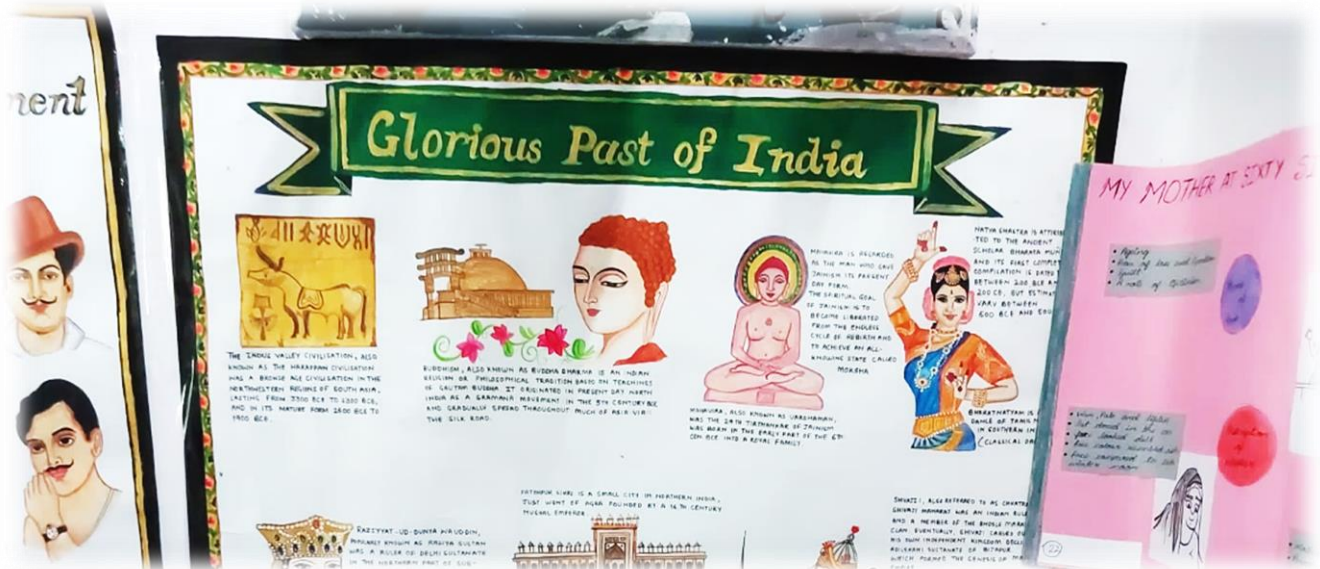 ment
Glorious Past of India
THE INDUS VALLEY CIVILISATION, ALSO
KNOWN AS THE HARAPPAN CIVILISATION
WAS A BRONZE AGE CIVILISATION IN THE
NORTHWESTERN REGIONS OF SOUTH ASIA,
LASTING FROM 3300 BCE TO 1300 BCE,
AND IN ITS MATURE FORM 2600 BCE TO
1900 BCE.
BUDDHISM, ALSO KNOWN AS BUDDHA DHARMA IS AN INDIAN
RELIGION OR PHILOSOPHICAL TRADITION BASED ON TEACHINGS
OF GAUTAM BUDDHA IT ORIGINATED IN PRESENT DAY NORTH
INDIA AS A SRAMANA MOVEMENT IN THE 5TH CENTURY BCE
AND GRADUALLY SPREAD THROUGHOUT MUCH OF ASIA VIA
THE SILK ROAD.
MAHAVIRA IS REGARDED
AS THE MAN WHO GAVE
JAINISM ITS PRESENT
DAY FORM.
THE SPIRITUAL GOAL
OF JAINISM IS TO
BECOME LIBERATED
FROM THE ENDLESS
CYCLE OF REBIRTH AND
TO ACHIEVE AN ALL-
KNOWING STATE CALLED
MOKSHA
MAHAVIRA, ALSO KNOWN AS VARDHAMAN,
WAS THE 24TH TIRTHANKAR OF JAINISM
WAS BORN IN THE EARLY PART OF THE 6TH
CEN BCE INTO A ROYAL FAMILY
NATYA SHASTRA IS ATTRIBU
TED TO THE ANCIENT
SCHOLAR BHARATA MUNI
AND ITS FIRST COMPLETE
COMPILATION IS DATED
BETWEEN 200 BCE AND
200 CE, BUT ESTIMATES
VARY BETWEEN
500 BCE AND 500
BHARATNATYAM IS
DANCE OF TAMIL N
IN SOUTHERN IN
(CLASSICAL DA
RAZIYYAT-UD-DUNYA WA UDDIN,
POPULARLY KNOWN AS RAZIYA SULTAN
WAS A RULER OF DELHI SULTANATE
IN THE NORTHERN PART OF SUB-
FATEHPUR SIKRI IS A SMALL CITY IN NORTHERN INDIA,
JUST WEST OF AGRA FOUNDED BY A 16TH CENTURY
MUGHAL EMPEROR.
SHIVAJI, ALSO REFERRED TO AS CHHATRA
SHIVAJI MAHARAJ WAS AN INDIAN RULE
AND A MEMBER OF THE BHOSLE MARA
CLAN. EVENTUALLY, SHIVAJI CARVED OU
HIS OWN INDEPENDENT KINGDOM
ADILSHAHI SULTANATE OF BIJAPUR
WHICH FORMED THE GENESIS OF
MY MOTHER AT SIXTY SI
Ageing
22